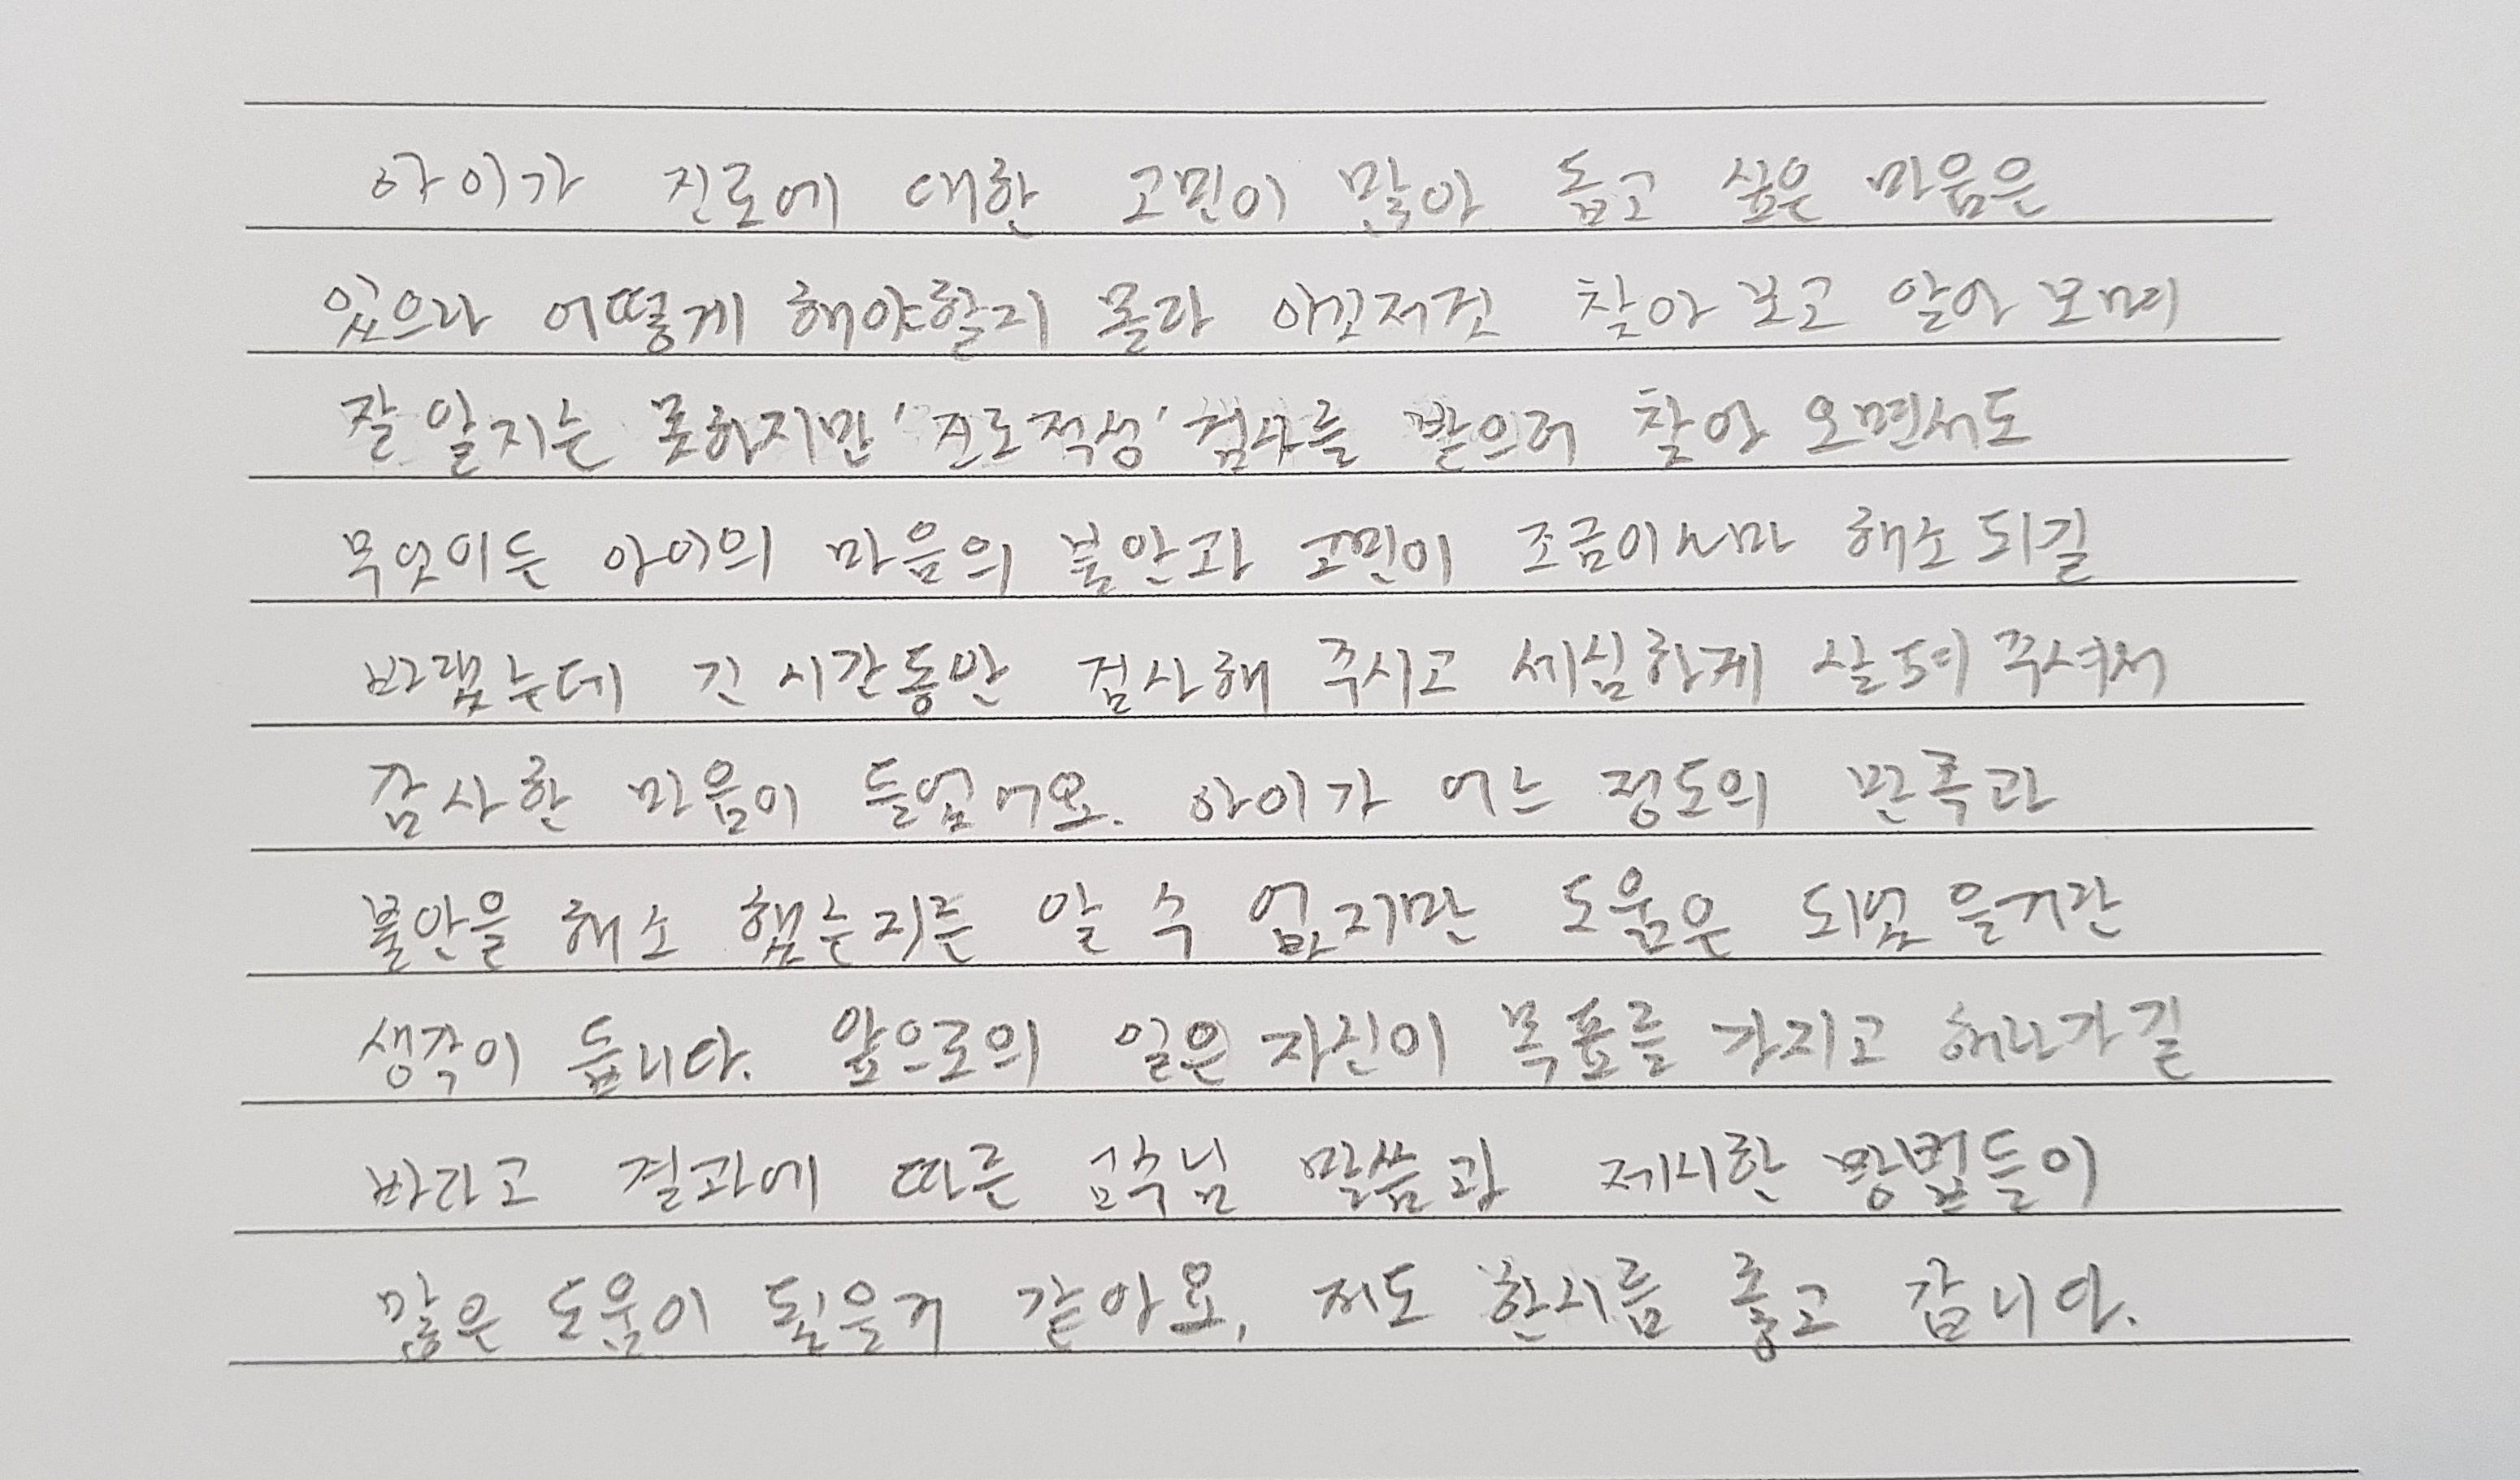 아이가 진로에 대한 고민이 많아 돕고 싶은 마음은
있으나 어떻게 해야할지 몰라 이것저것 찾아 보고 알아 보며
잘 알지는 못하지만 '진로적성' 검사를 받으러 찾아 오면서도
무엇이든 아이의 마음의 불안과 고민이 조금이나마 해소 되길
바랬는데 긴 시간동안 검사해 주시고 세심하게 살펴 주셔서
감사한 마음이 들었어요. 아이가 어느 정도의 만족과
불안을 해소 했는지는 알 수 없지만 도움은 되었을거란
생각이 듭니다. 앞으로의 일은 자신이 목표를 가지고 해나가길
바라고 결과에 따른 말씀과 제시한 방법들이
많은 도움이 됬을거 같아요, 저도 한시름 놓고 갑니다.